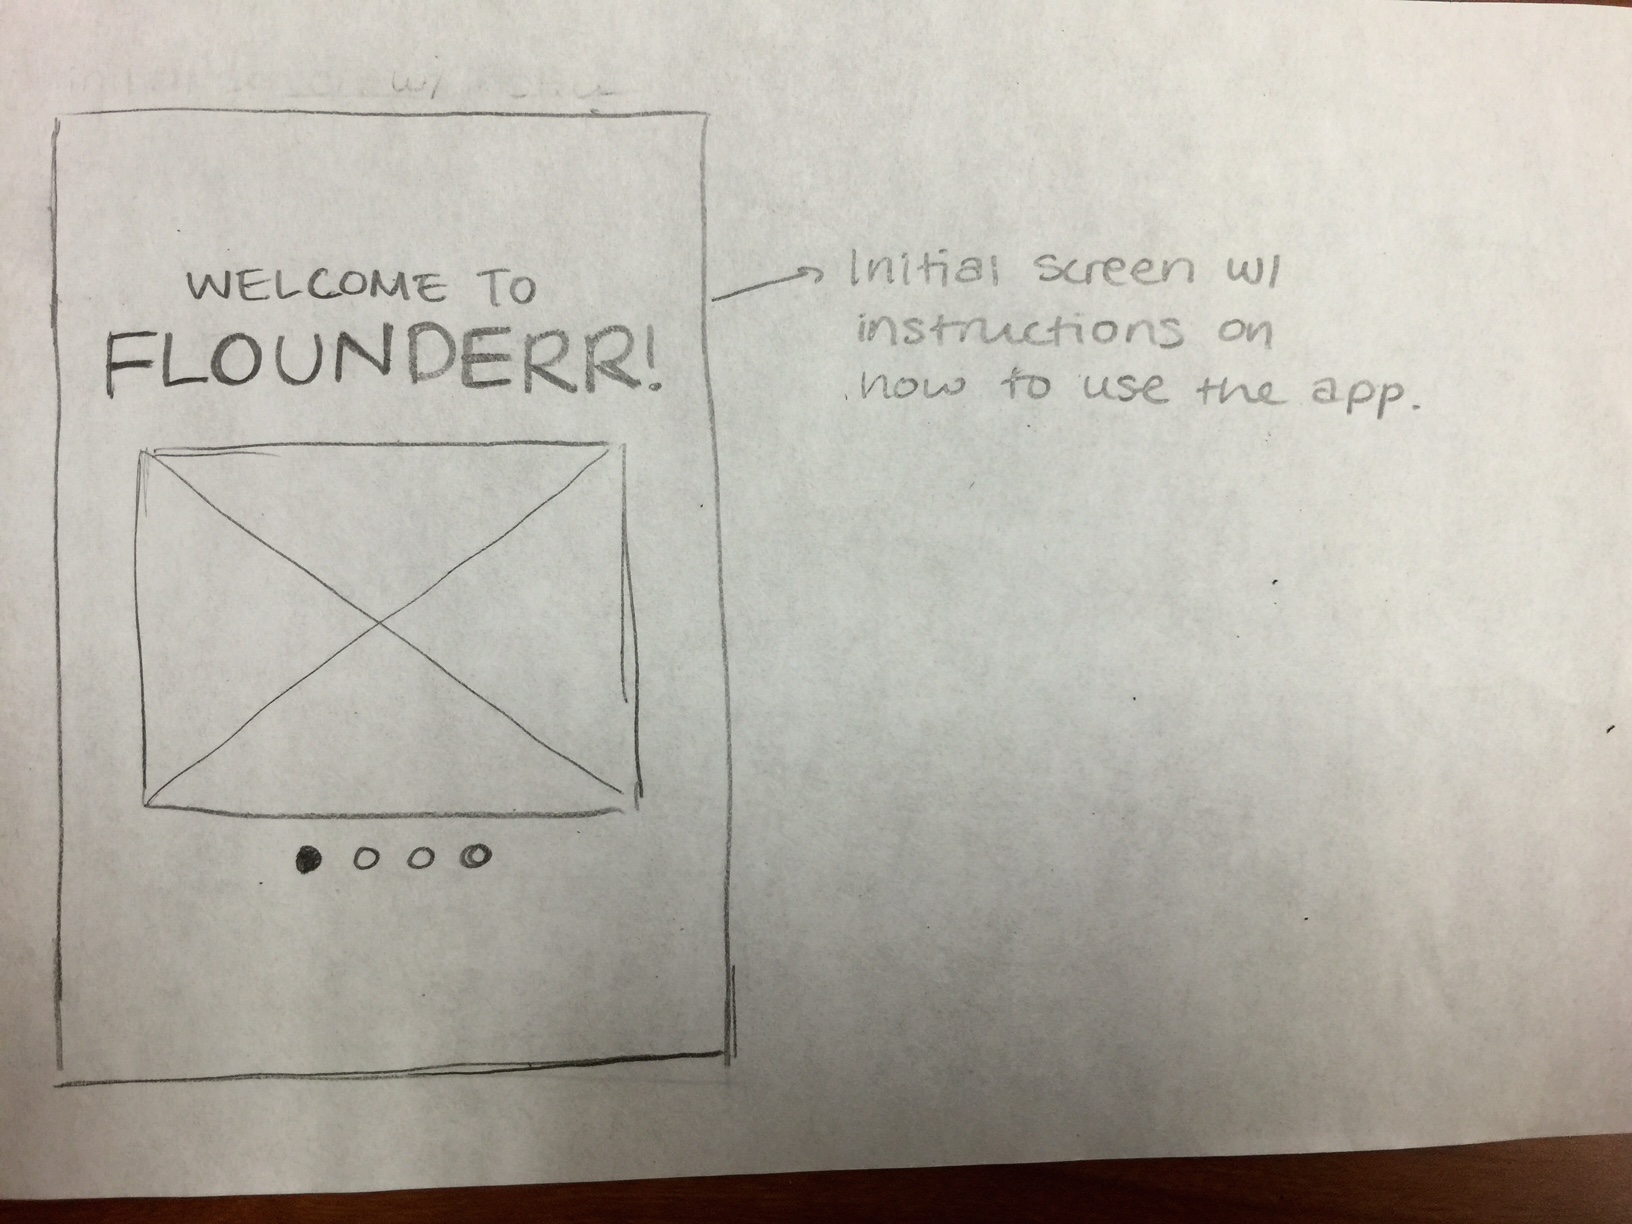 WELCOME TO
FLOUNDERR!
Initial screen w/
instructions on
how to use the app.